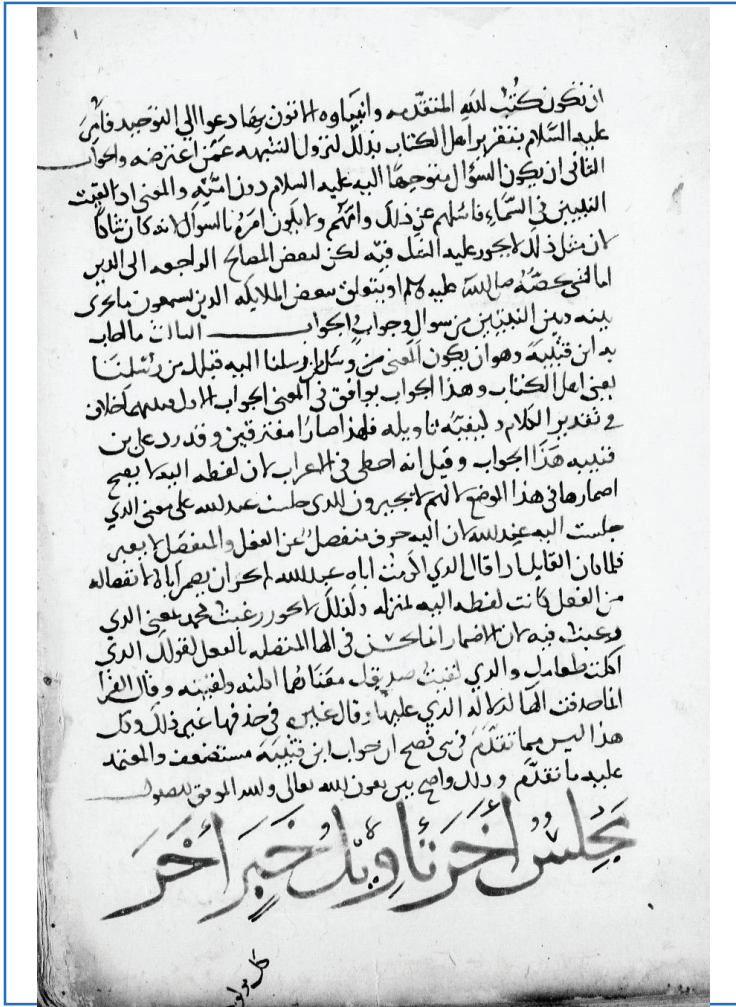 ان تكون كتب الله المتقدمه وانبياوه الاتون بها دعوا الي التوحيد فامر
عليه السلام بتقرير اهل الكتاب بذلك لتزول الشبهه عمن اعترضه والجواب
الثاني ان يكون السؤال متوجها اليه عليه السلام دون امته والمعنى اذا لقيت
النبيين في السماء فاسلهم عن ذلك وامهم ولا يكون امره بالسوال لانه كان شاكا
لان مثل ذلك لا يجوز عليه الشك فيه لكن لبعض المصالح الراجعه الى الدين
اما لشي يخصه صلى الله عليه وسلم او يتعلق ببعض الملايكه الذين يسمعون ما يجرى
بينه وبين النبيين من سوال وجواب والجواب الثالث ما اجاب
به ابن قتيبة وهو ان يكون المعنى من ارسلنا اليه قبلك من رسلنا
يعني اهل الكتاب وهذا الجواب يوافق في المعنى الجواب الاول وبينهما خلاف
في تقدير الكلام وكيفيه تاويله فلهذا صارا مفترقين وقد رد على بن
قتيبه هذا الجواب وقيل انه اخطى في الاعراب لان لفظه اليه لا يصح
اضمارها في هذا الموضع لانهم لا يجيزون الذي جلست عبد الله على معنى الذي
جلست اليه عبد الله لان اليه حرف منفصل عن الفعل والمنفصل لا يضمر
فلما كان القايل اذا قال الذي اكرمت اياه عبد الله لم يجز ان يضمر اياه لانفصاله
من الفعل كانت لفظه اليه بمنزلته وكذلك لا يجوز رغبت محمد بمعنى الذي
رغبت فيه لان الاضمار انما يحسن في الها المتصله بالفعل كقولك الذي
اكلت طعامك والذي لقيت صديقك معناهما اكلته ولقيته وقال الفرا
انما حذفت الها لدلاله الذي عليها وقال غيره في حذفها غير ذلك وكل
هذا ليس مما تقدم في شي فصح ان جواب ابن قتيبة مستضعف والمعتمد
عليه ما تقدم وذلك واضح بين بعون الله تعالى والله الموفق للصواب
مجلس أخر تأويل خبر أخر